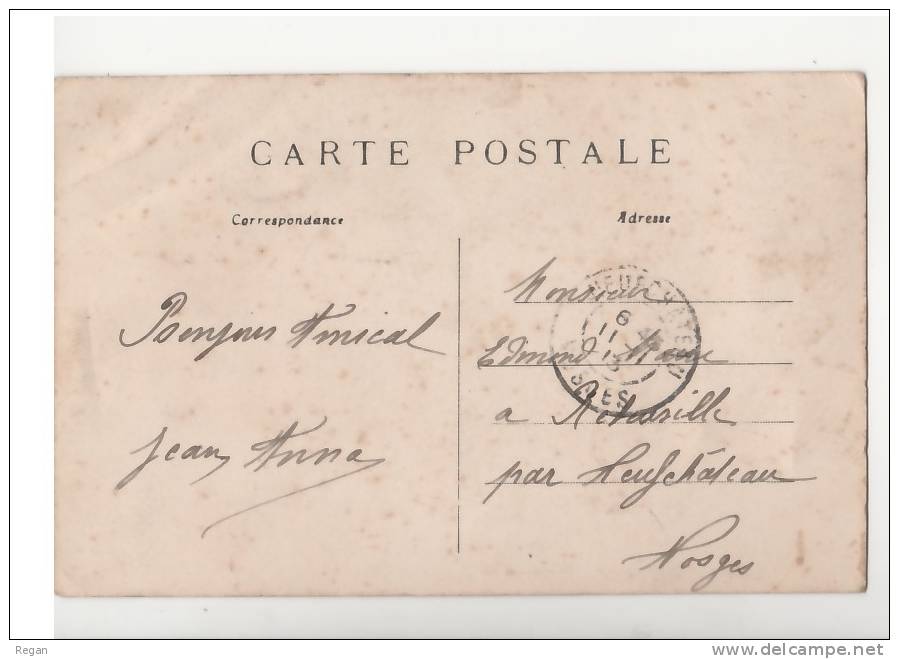 CARTE POSTALE
Correspondance
Adresse
Bonjour Amical
Jean Anna
Monsieur
Edmond
a
par Neufchâteau
Vosges
NEUFCHATEAU
6
11
13
VOSGES
Regan
www.delcampe.net